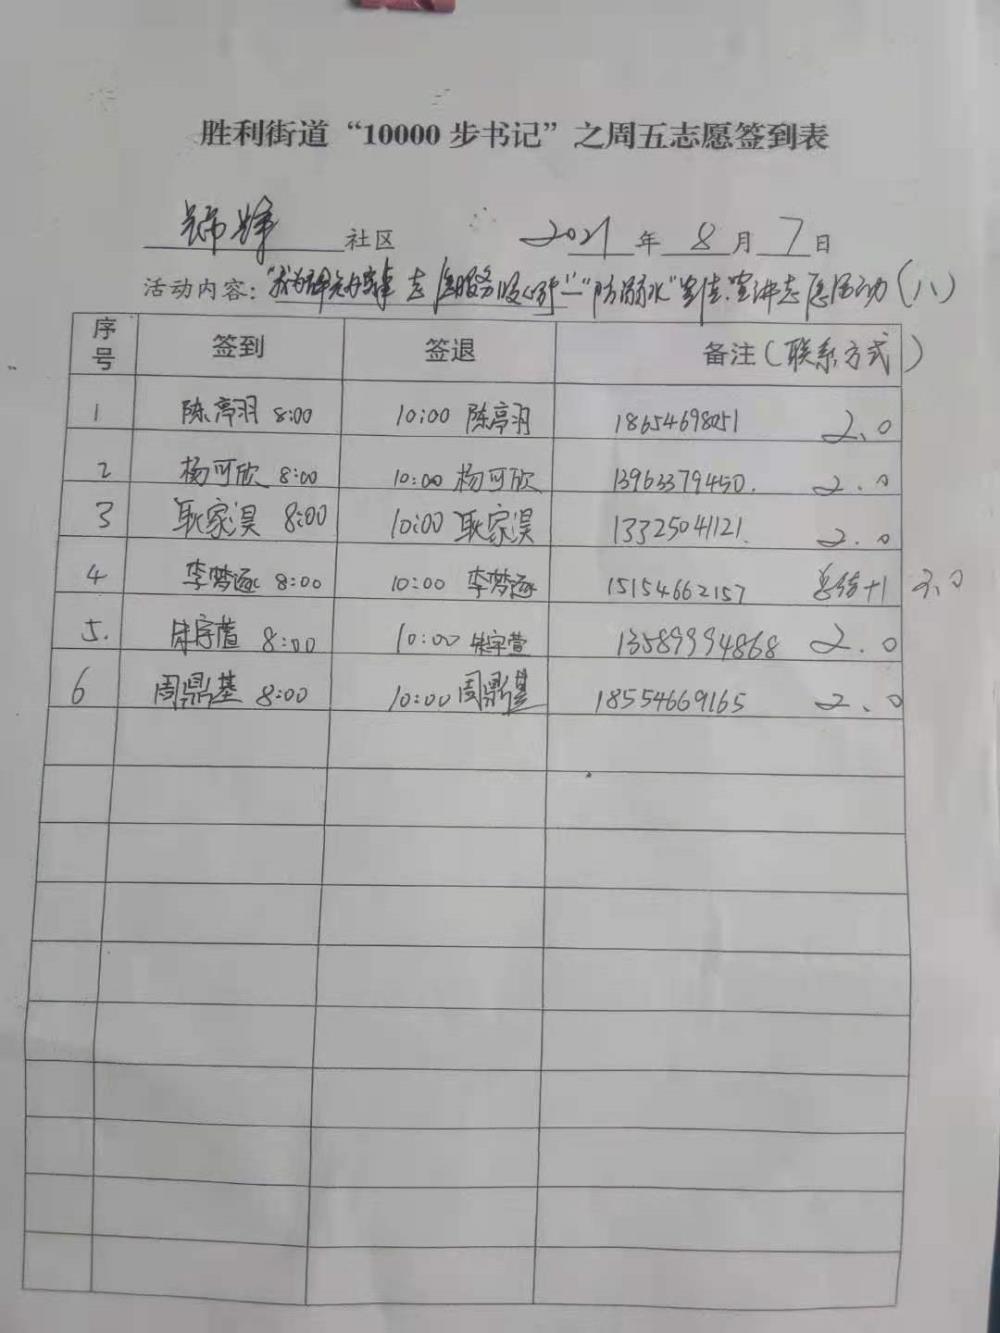 胜利街道“10000步书记”之周五志愿签到表
锦华 社区 2021 年 8 月 7 日
活动内容：“我为群众办实事 志愿服务暖心行”—“防溺水”宣传、宣讲志愿活动（八）
序号 签到 签退 备注（联系方式）
1 陈亭羽 8:00 10:00 陈亭羽 18654698051 2.0
2 杨可欣 8:00 10:00 杨可欣 13963379450. 2.0
3 耿家淏 8:00 10:00 耿家淏 13325041121. 2.0
4 李梦逐 8:00 10:00 李梦逐 15154662157 总结+1 3.0
5. 朱宇萱 8:00 10:00 朱宇萱 13589994868 2.0
6 周鼎基 8:00 10:00 周鼎基 18554669165 2.0